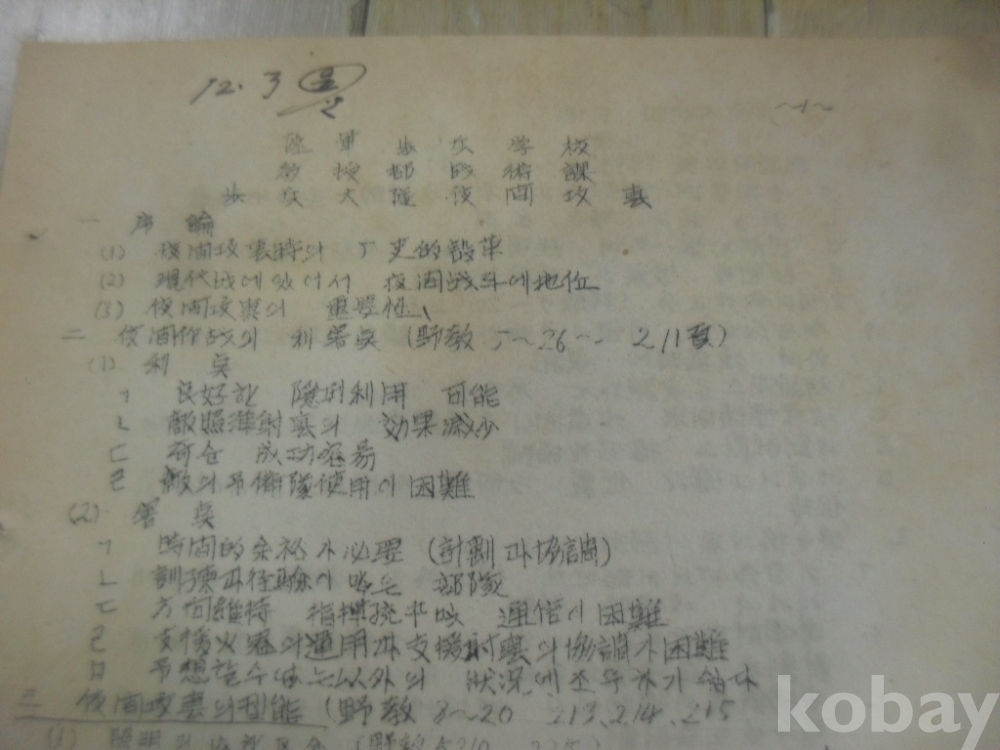 12. 3
~1~
陸軍步兵学校
教授部戦術課
步兵大隊夜間攻擊
一 序論
(1) 夜間攻擊時의 史的沿革
(2) 現代战에있어서 夜间战斗에地位
(3) 夜间攻擊의 重要性
二 夜间作战의 利害點 (野教 5~26~ 211頁)
(1) 利點
ㄱ 良好한 隱蔽利用 可能
ㄴ 敵照準射擊의 効果减少
ㄷ 成功容易
ㄹ 敵의予備隊使用이困難
(2) 害點
ㄱ 時间的余裕가必要 (計劃과協調)
ㄴ 訓練과経験이 많은 部隊
ㄷ 方向維持 指揮統率 및 通信이困難
ㄹ 支援火器의運用과支援射擊의協調가困難
ㅁ 予想할수없는以外의 狀況에조우하기쉽다
三 夜间攻擊의型態 (野教 8~20 213.214.215
(1) 照明
kobay